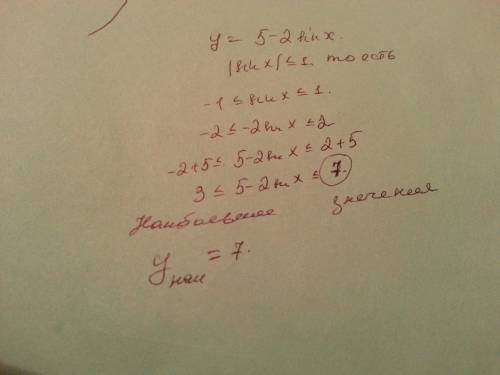 y = 5-2sinx.
|sin x| ≤ 1. то есть
-1 ≤ sin x ≤ 1.
-2 ≤ -2sin x ≤ 2
-2+5 ≤ 5-2sin x ≤ 2+5
3 ≤ 5-2sin x ≤ 7.
Наибольшее значение
y наи = 7.